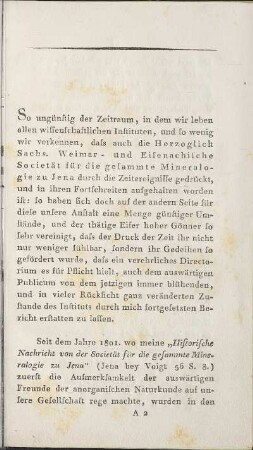 So ungünstig der Zeitraum, in dem wir leben
allen wiſſenſchaftlichen Inſtituten, und ſo wenig
wir verkennen, daſs auch die Herzoglich
Sachs. Weimar- und Eiſenachiſche
Societät für die geſammte Mineralo-
gie zu Jena durch die Zeitereigniſſe gedrückt,
und in ihren Fortſchreiten aufgehalten worden
iſt: ſo haben ſich doch auf der andern Seite für
dieſe unſere Anſtalt eine Menge günſtiger Um-
ſtände, und der thätige Eifer hoher Gönner ſo
ſehr vereinigt, daſs der Druck der Zeit ihr nicht
nur weniger fühlbar, ſondern ihr Gedeihen ſo
gefördert wurde, daſs ein verehrliches Directo-
rium es für Pflicht hielt, auch dem auswärtigen
Publicum von dem jetzigen immer blühenden,
und in vieler Rückſicht ganz veränderten Zuſtan-
de des Inſtituts durch mich fortgeſetzten Be-
richt erſtatten zu laſſen.
Seit dem Jahre 1802. wo meine „Hiſtoriſche
Nachricht von der Societät für die geſammte Mine-
ralogie zu Jena“ (Jena bey Voigt 56 S. 8.)
zuerſt die Aufmerkſamkeit der auswärtigen
Freunde der anorganiſchen Naturkunde auf un-
ſere Geſellſchaft rege machte, wurden in den
A 2